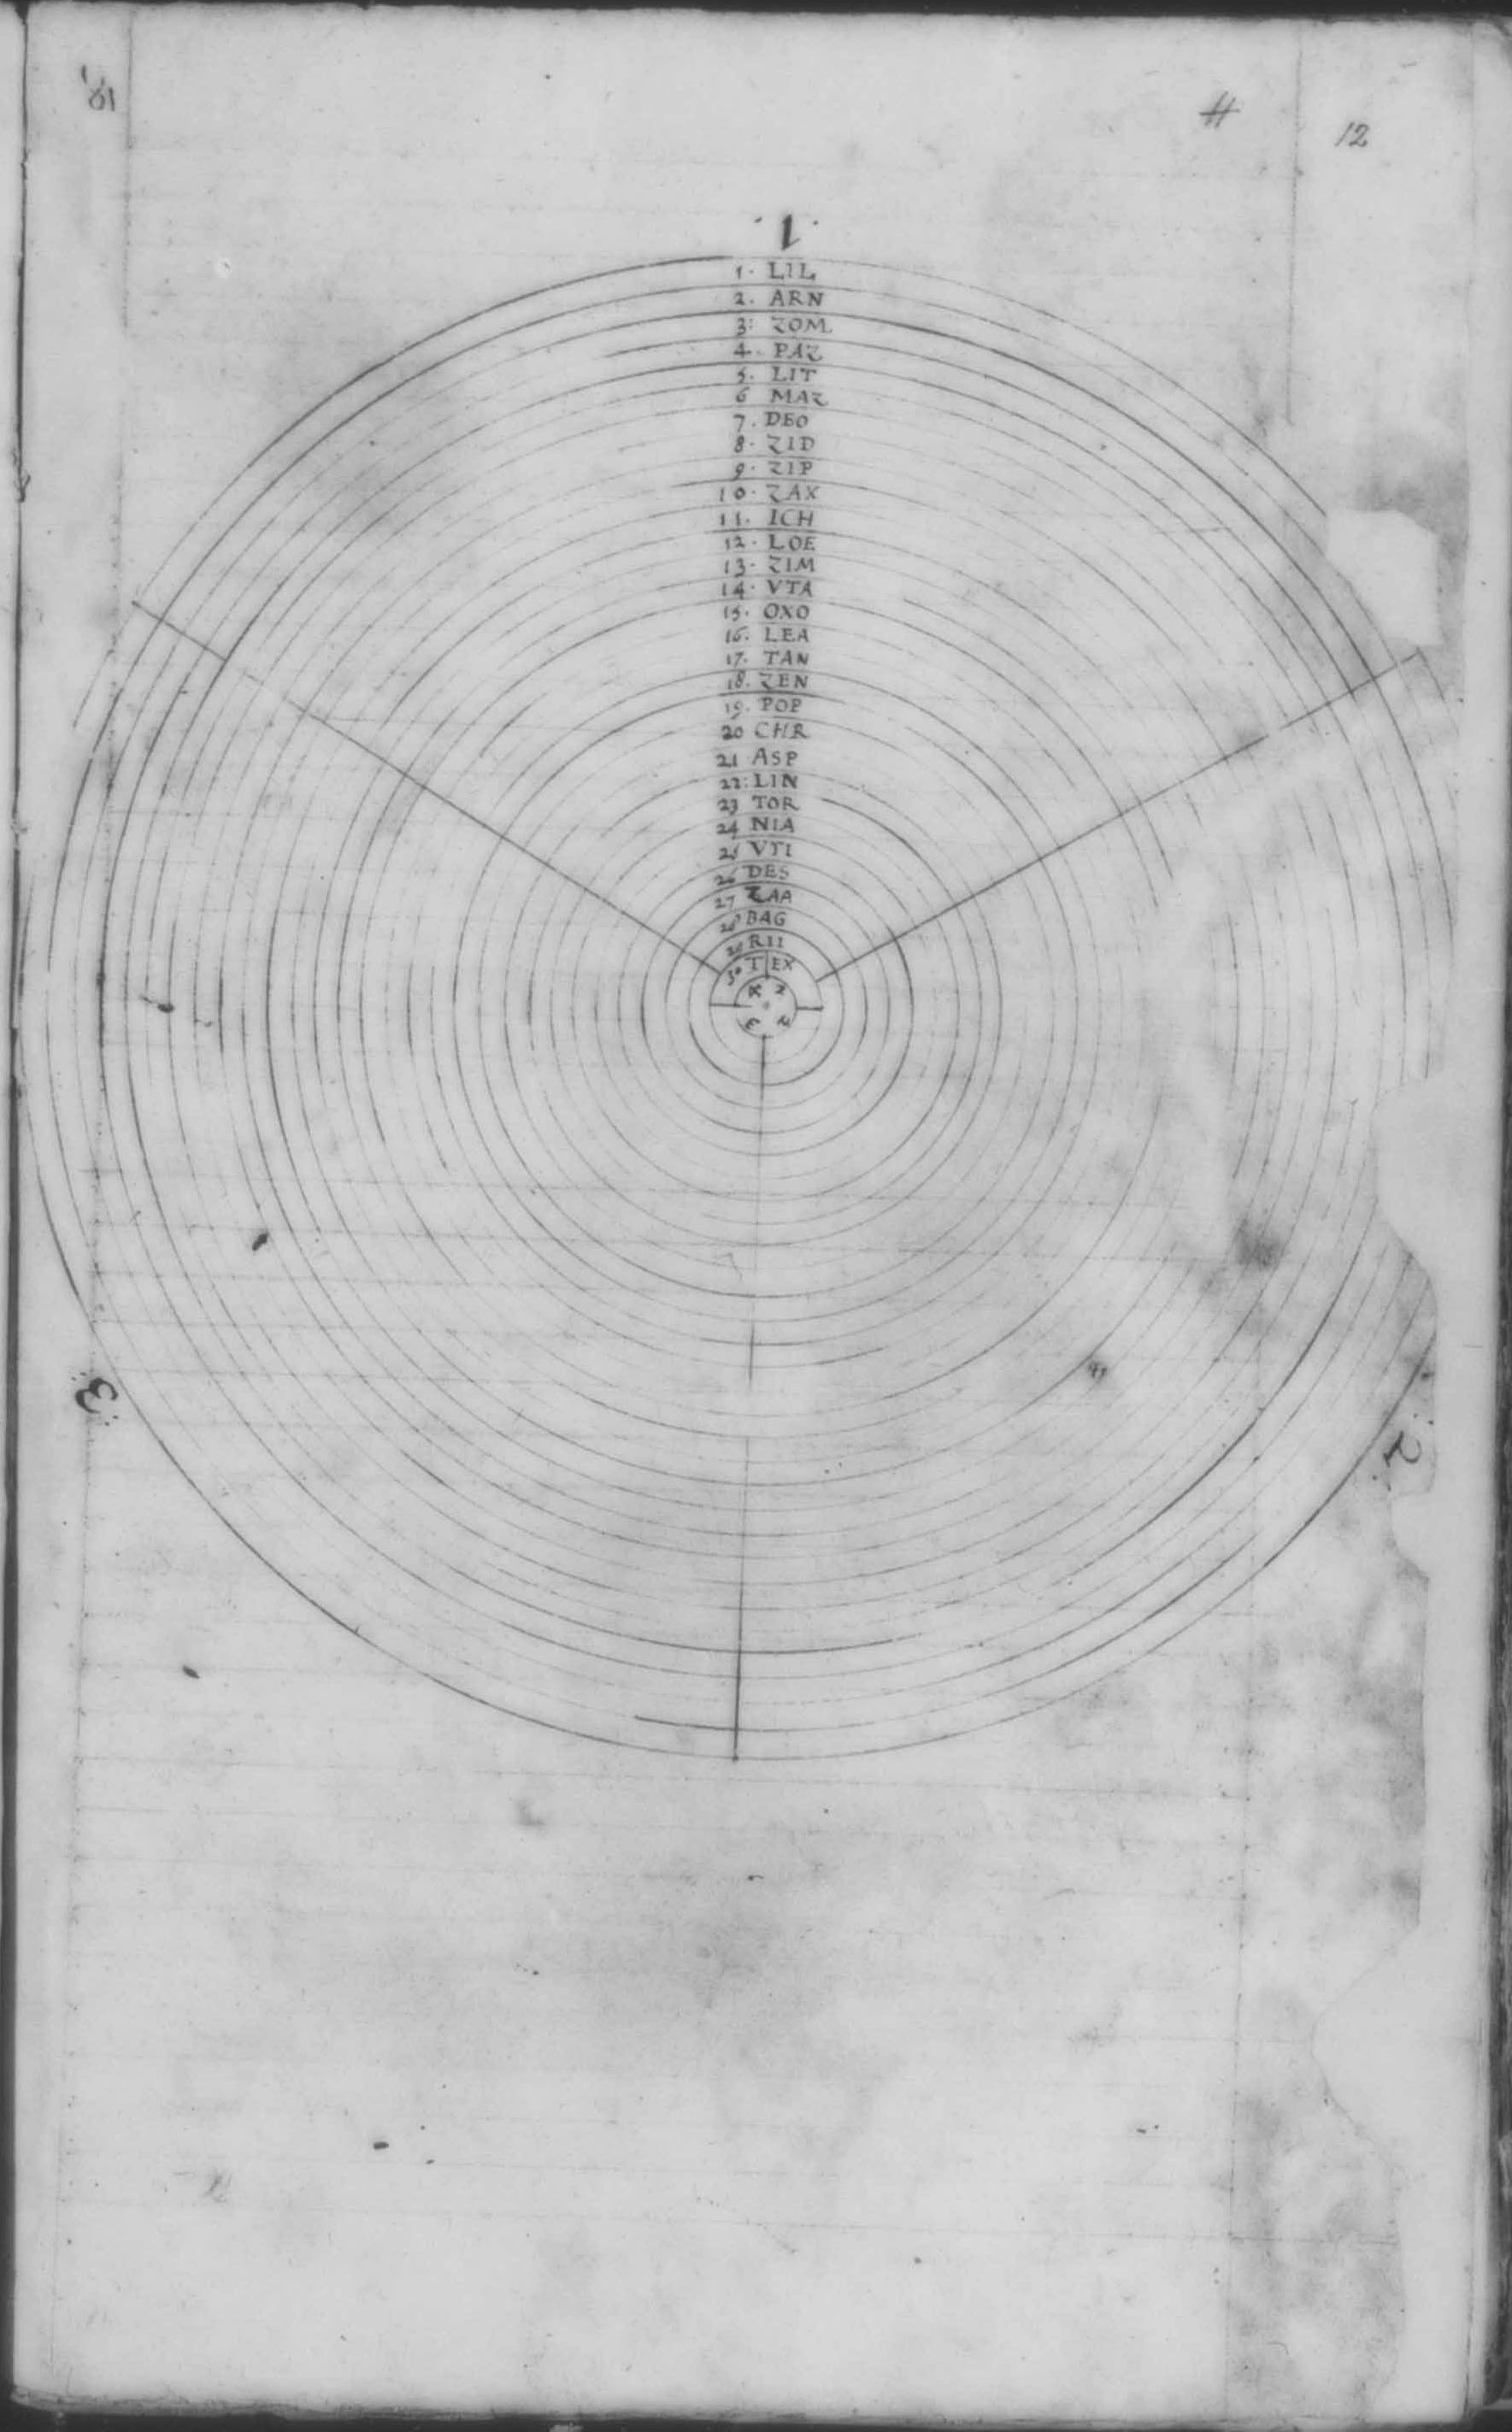 12
1
1. LIL
2. ARN
3: ZOM
4. PAZ
5. LIT
6 MAZ
7. DEO
8. ZID
9. ZIP
10. ZAX
11. ICH
12. LOE
13. ZIM
14. VTA
15. OXO
16. LEA
17. TAN
18. ZEN
19. POP
20 CHR
21 ASP
22: LIN
23 TOR
24 NIA
25 VTI
26 DES
27 ZAA
28 BAG
29 RII
30 TEX
3
2